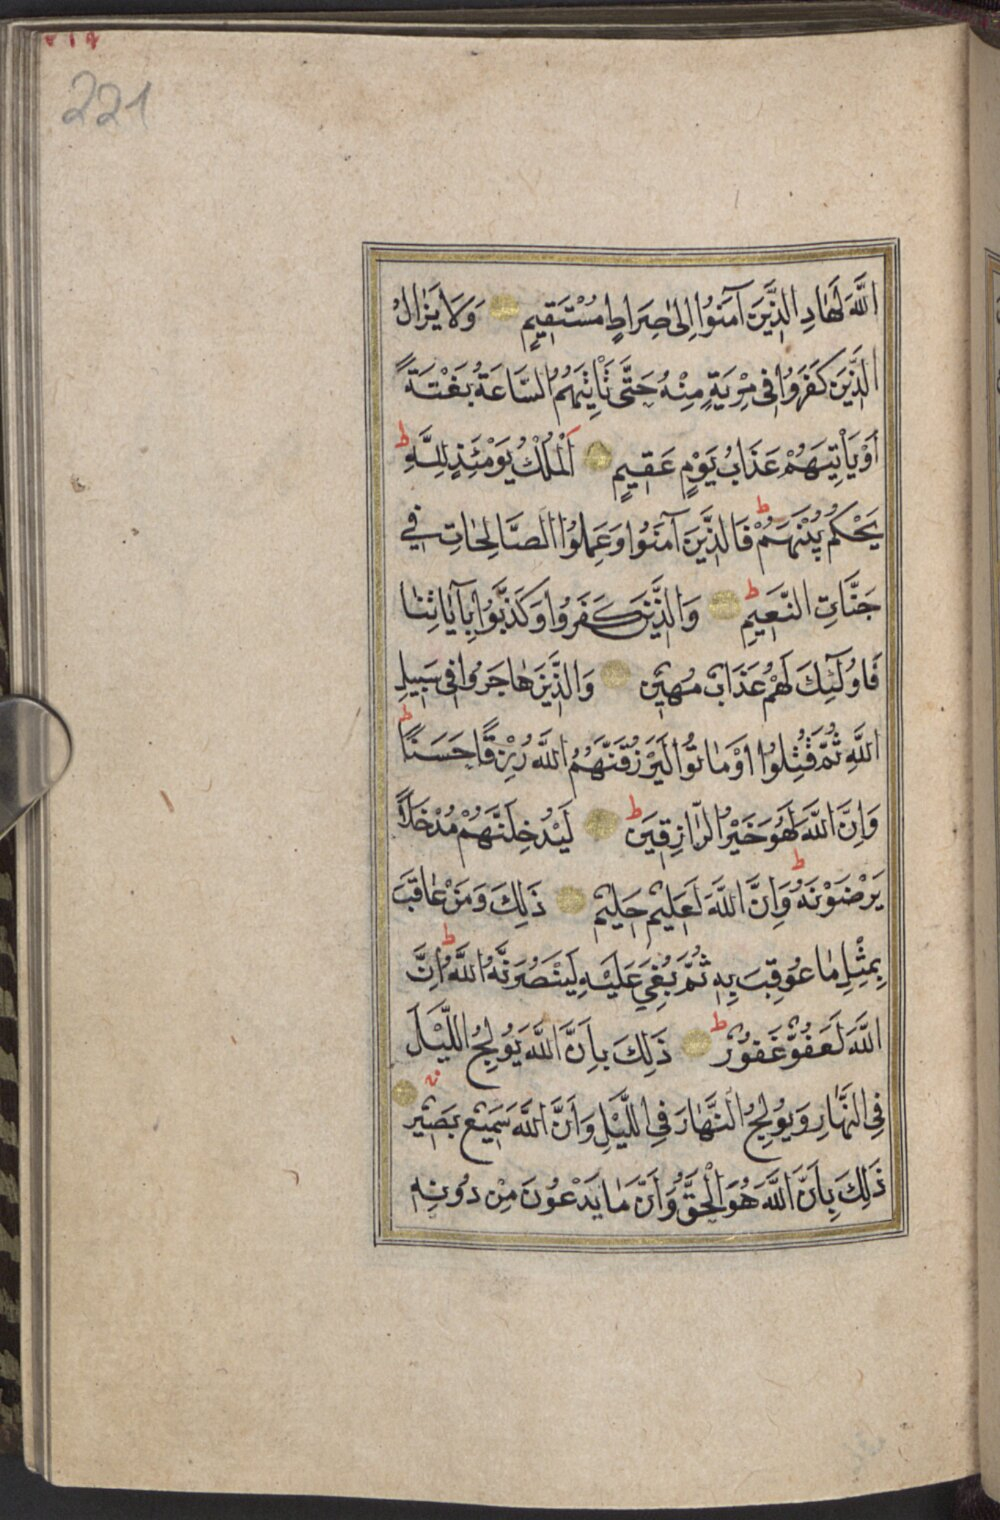 ٢١٩
221
اللَّهَ لَهَادِ الَّذِينَ آمَنُوا إِلَى صِرَاطٍ مُسْتَقِيمٍ وَلَا يَزَالُ
الَّذِينَ كَفَرُوا فِي مِرْيَةٍ مِنْهُ حَتَّى تَأْتِيَهُمُ السَّاعَةُ بَغْتَةً
أَوْ يَأْتِيَهُمْ عَذَابُ يَوْمٍ عَقِيمٍ اَلْمُلْكُ يَوْمَئِذٍ لِلَّهِ ط
يَحْكُمُ بَيْنَهُمْ ط فَالَّذِينَ آمَنُوا وَعَمِلُوا الصَّالِحَاتِ فِي
جَنَّاتِ النَّعِيمِ ط وَالَّذِينَ كَفَرُوا وَكَذَّبُوا بِآيَاتِنَا
فَاُولَئِكَ لَهُمْ عَذَابٌ مُهِينٌ وَالَّذِينَ هَاجَرُوا فِي سَبِيلِ
اللَّهِ ثُمَّ قُتِلُوا أَوْ مَاتُوا لَيَرْزُقَنَّهُمُ اللَّهُ رِزْقًا حَسَنًا ط
وَإِنَّ اللَّهَ لَهُوَ خَيْرُ الرَّازِقِينَ ط لَيُدْخِلَنَّهُمْ مُدْخَلًا
يَرْضَوْنَهُ ط وَإِنَّ اللَّهَ لَعَلِيمٌ حَلِيمٌ ذَلِكَ وَمَنْ عَاقَبَ
بِمِثْلِ مَا عُوقِبَ بِهِ ثُمَّ بُغِيَ عَلَيْهِ لَيَنْصُرَنَّهُ اللَّهُ ط اِنَّ
اللَّهَ لَعَفُوٌّ غَفُورٌ ط ذَلِكَ بِاَنَّ اللَّهَ يُولِجُ اللَّيْلَ
فِي النَّهَارِ وَيُولِجُ النَّهَارَ فِي اللَّيْلِ وَاَنَّ اللَّهَ سَمِيعٌ بَصِيرٌ
ذَلِكَ بِاَنَّ اللَّهَ هُوَ الْحَقُّ وَاَنَّ مَا يَدْعُونَ مِنْ دُونِهِ